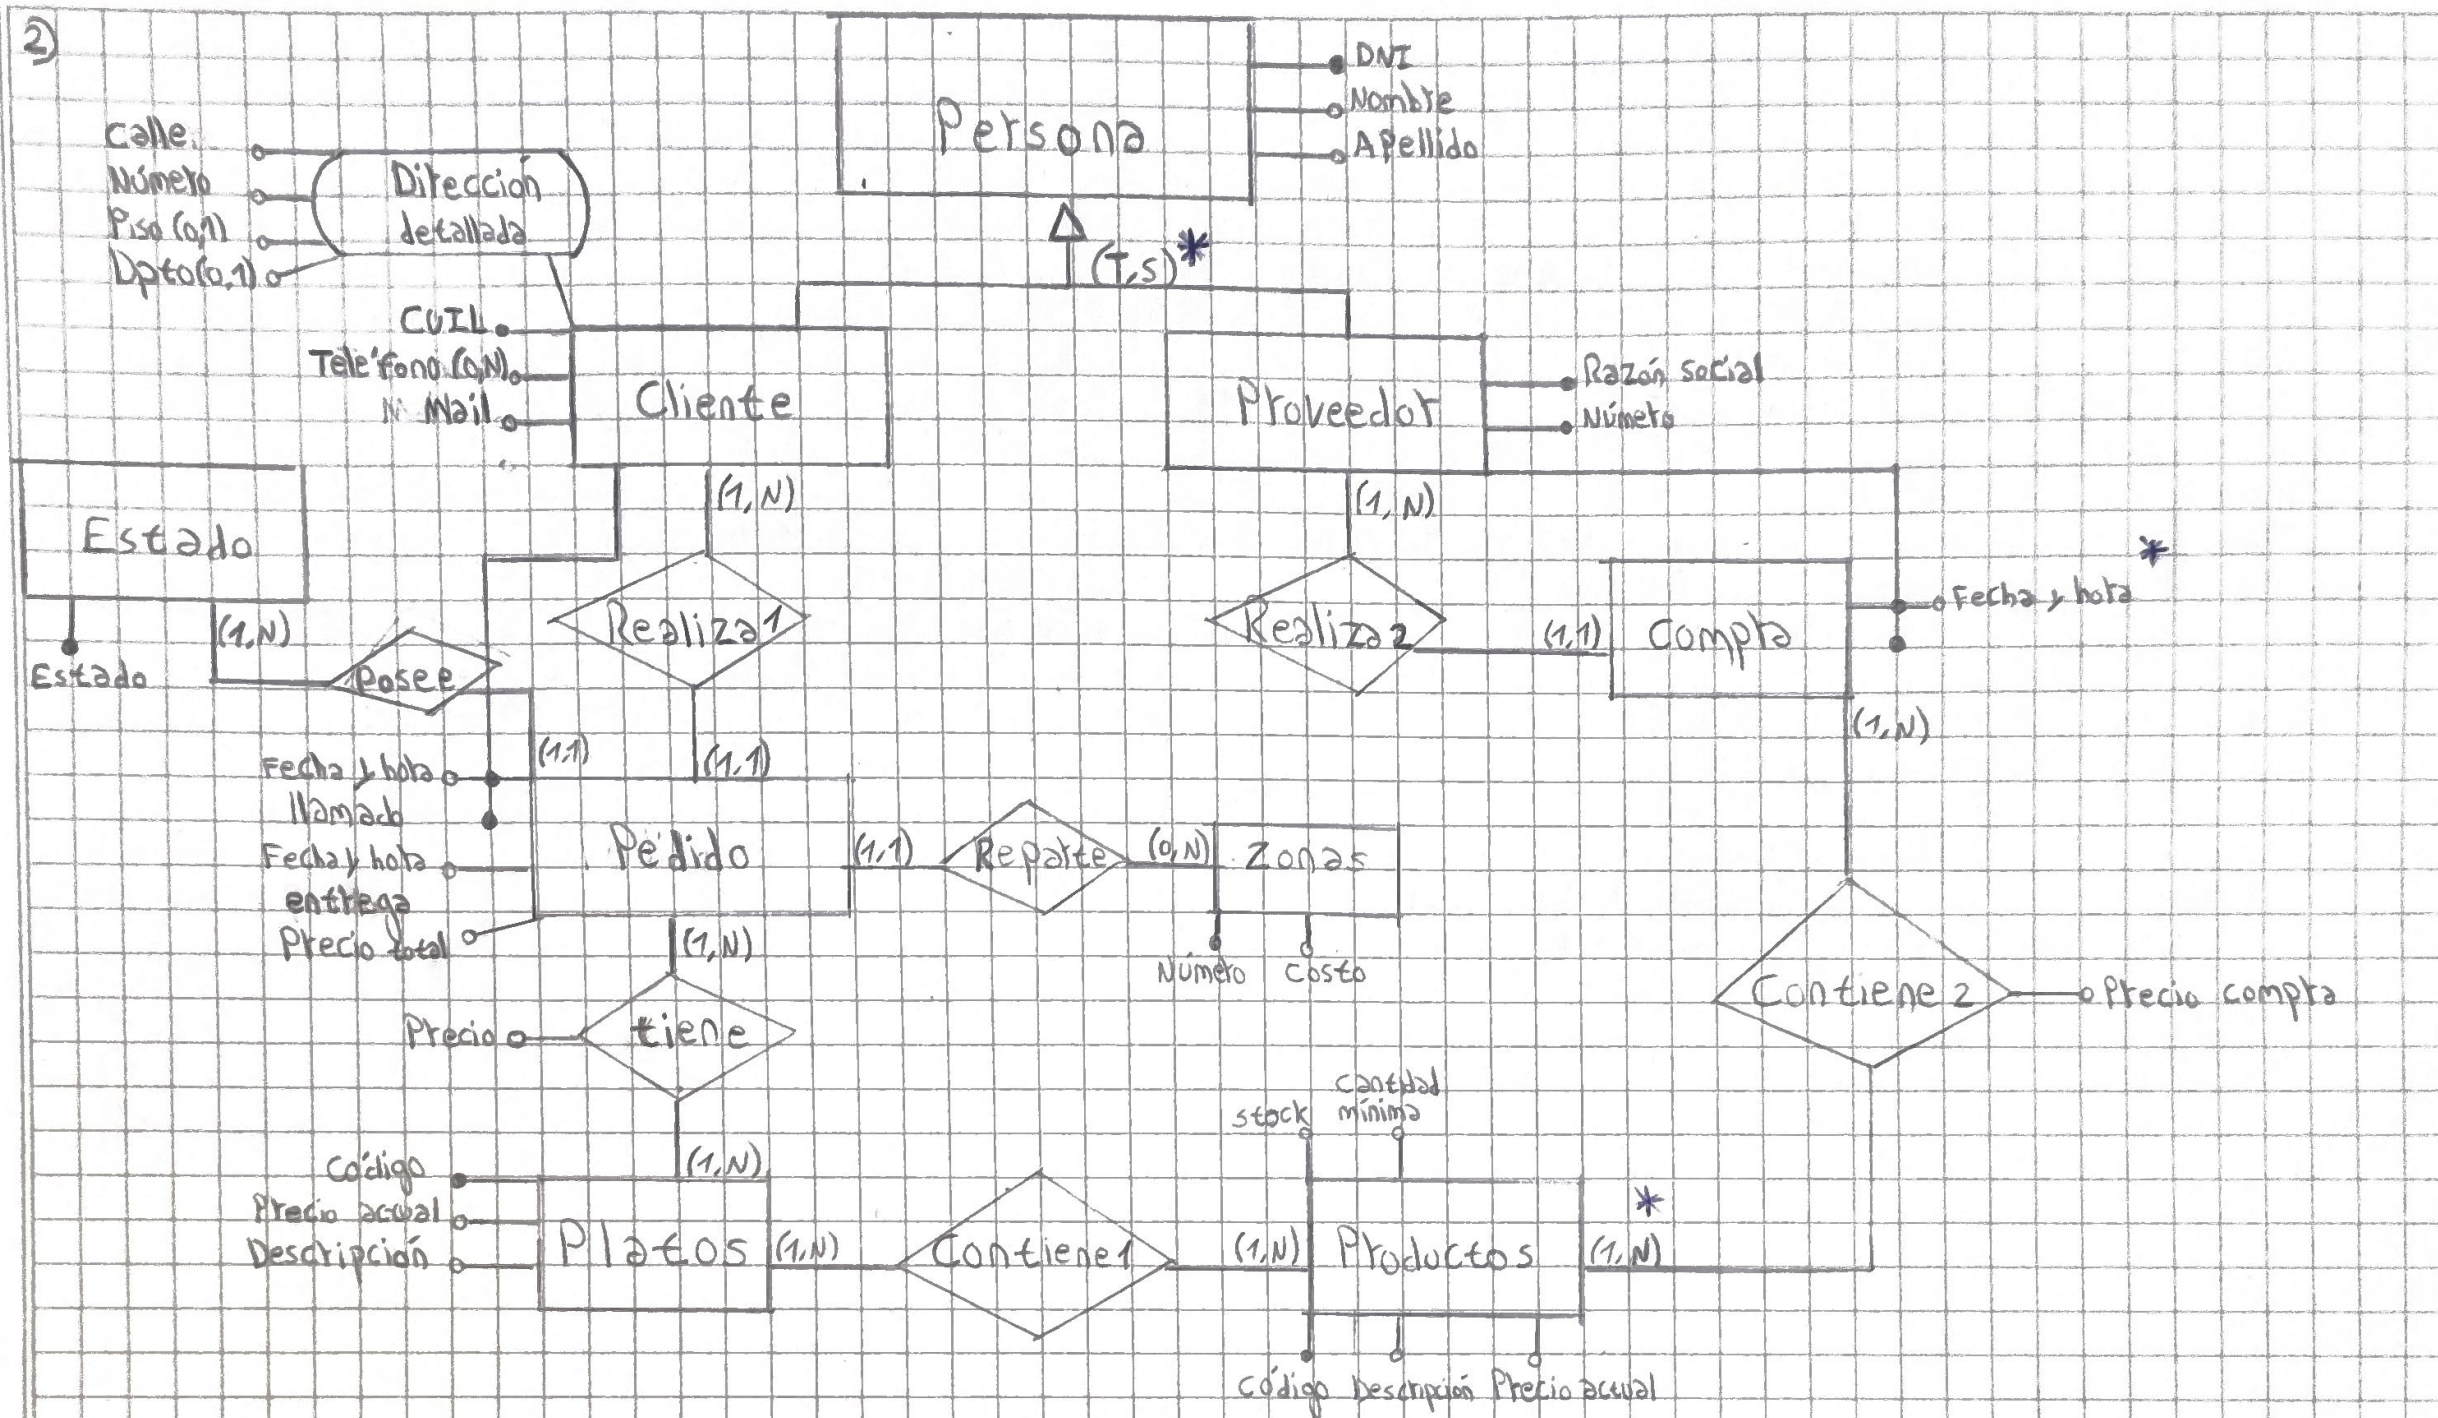 2)
Persona
DNI
Nombre
Apellido
Calle
Número
Piso (0,1)
Dpto (0,1)
Dirección
detallada
(T,S)*
CUIL
Teléfono (0,N)
Mail
Cliente
Proveedor
Razón social
Número
Estado
Estado
(1,N)
Posee
(1,1)
(1,N)
Realiza1
(1,1)
(1,N)
Realiza2
(1,1)
Compra
Fecha y hora
*
(1,N)
Fecha y hora
llamado
Fecha y hora
entrega
Precio total
Pedido
(1,1)
Reparte
(0,N)
Zonas
Número
Costo
(1,N)
Precio
tiene
(1,N)
Contiene 2
Precio compra
Código
Precio actual
Descripción
Platos
(1,N)
Contiene1
(1,N)
stock
cantidad
mínima
Productos
*
(1,N)
Código
Descripción
Precio actual